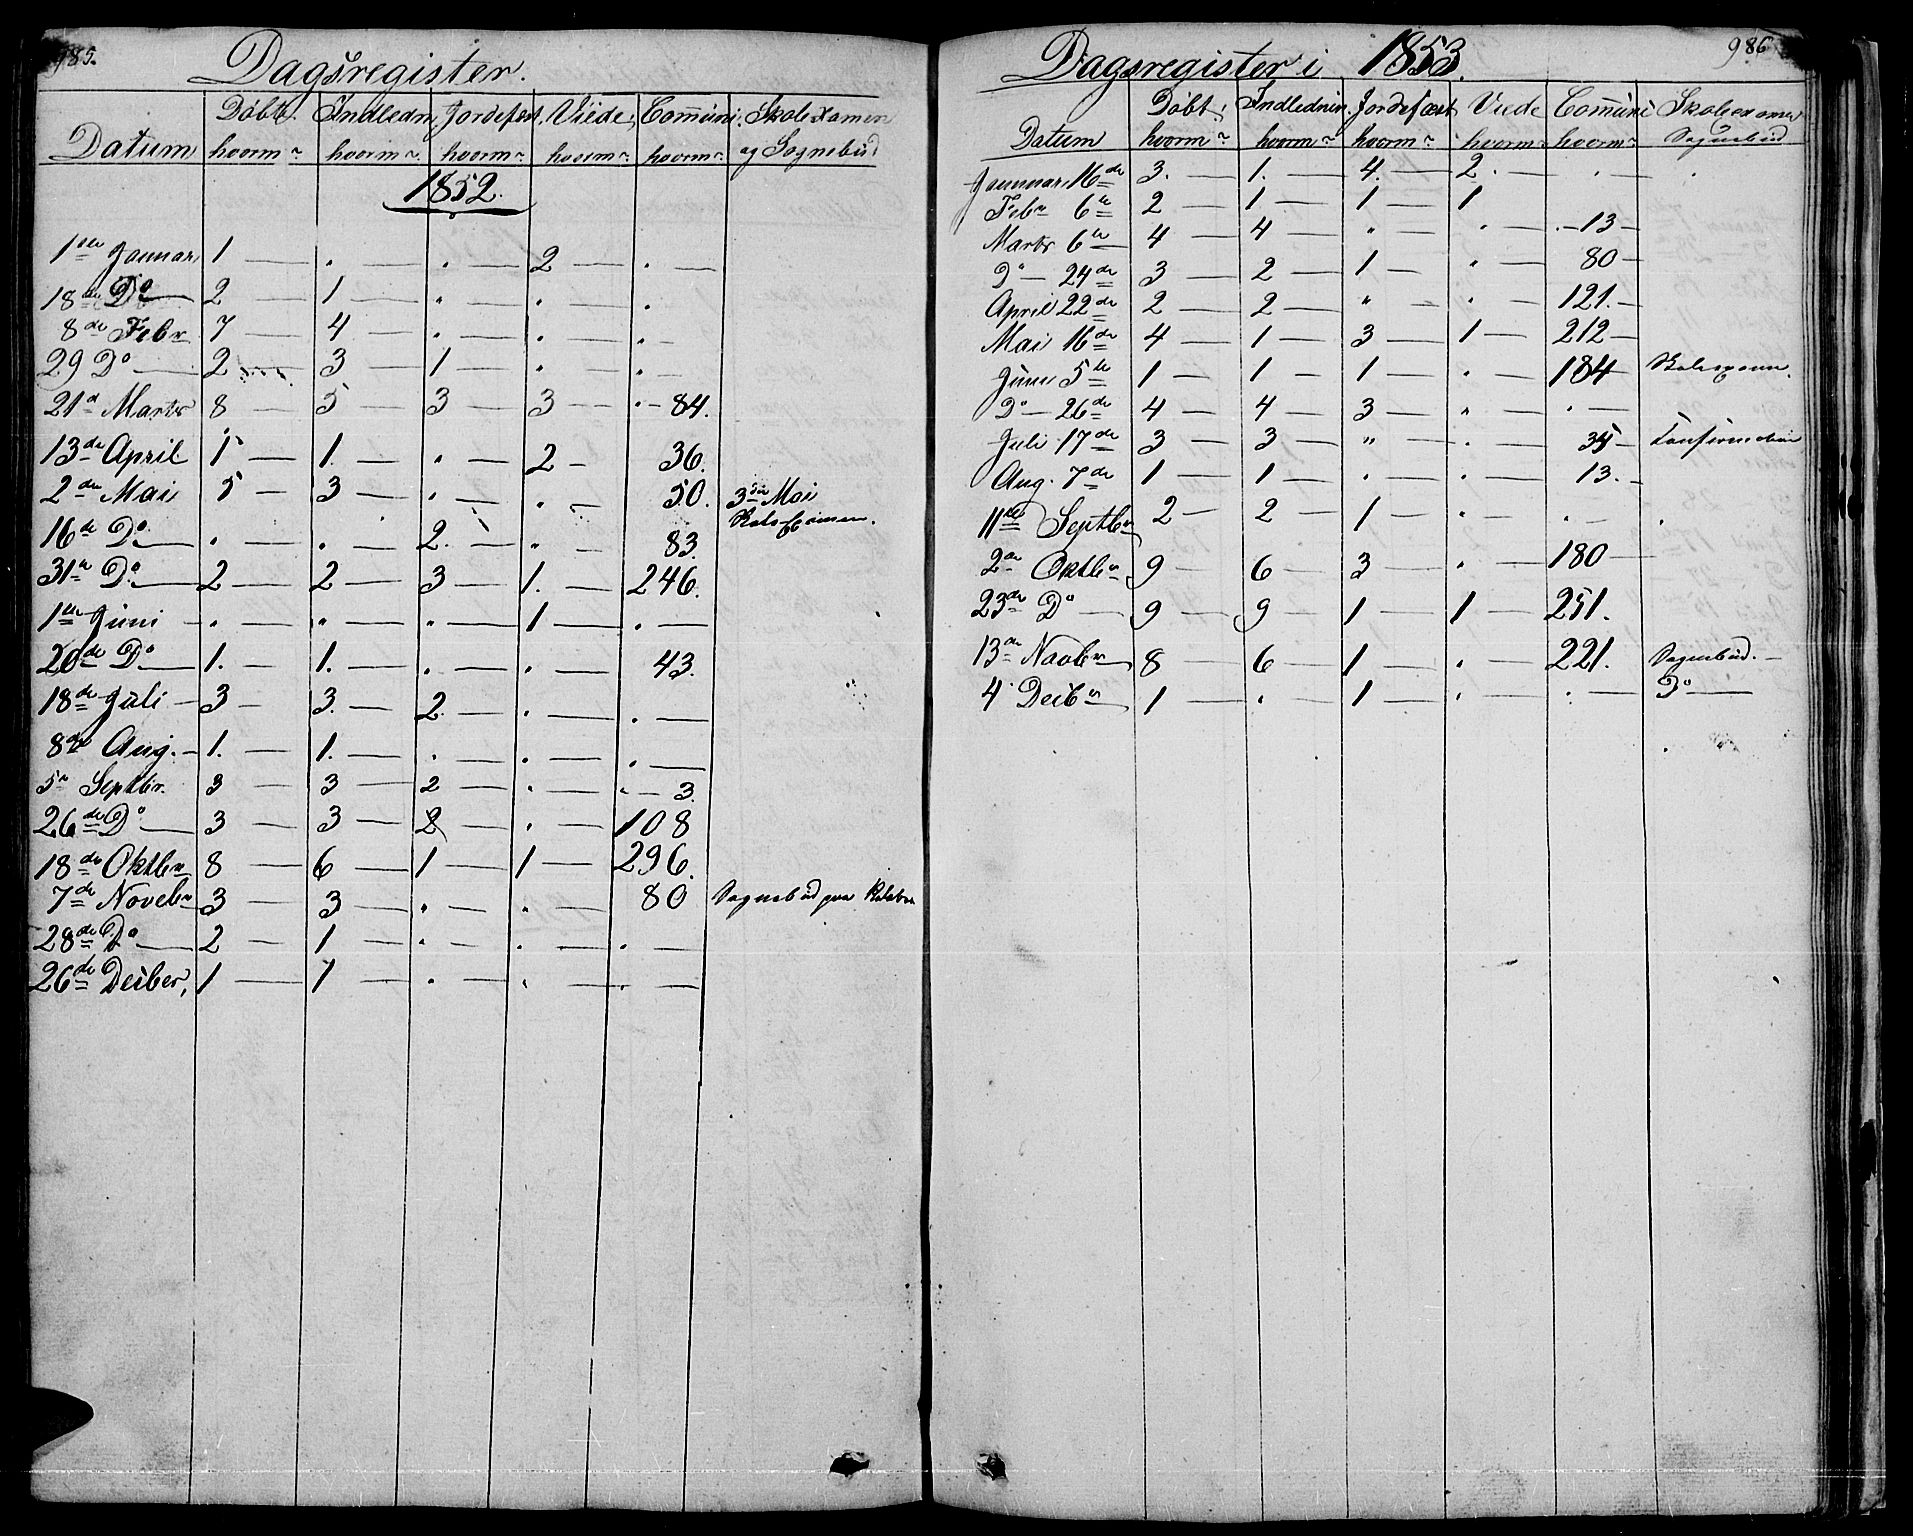 985.
Dagsregister.
Døbt. Indledn. Jordefæst. Viede. Com̄uni. Skoleexamen
Datum hvorm~ hvorm~ hvorm~ hvorm~ hvorm~ og Sognebud
1852.
1ste Januar, 1 — . — . — 2 — . —
18de Do — 2 — 1 — " . .
8de Febr 7 — 4 — . — . — . —
29 Do — 2 3 — 1 — . — . —
21de Marts 8 — 5 — 3 — 3 — . — 84.
13de April 1 — 1. — . — 2 — 36.
2den Mai 5 — 3 — . — . — 50. 3die Mai
Skole Examen.
16de Do — . — . — 2. — . — 83.
31te Do — 2 — 2 — 3 — 1. — 246.
1ste Juni — . — " — " — 1 — . —
20de Do — 1. — 1. — . — . — 43.
18de Juli — 3 — 3. — 2. — . — . —
8de Aug. — 1. — 1. — . — . — . —
5te Septbr. 3 — 3 — 2 — . — . — 3.
26de Do — 3 — 3 — 2 — . — 108
18de Oktbr 8 — 6 — 1 — 1 — 296.
7de Novebr 3 — 3 — . — . — 80 Sognebud paa
28de Do — 2 — 1 — . — . — . —
26de Deiber, 1 — 1 — . — . — . —
986
Dagsregister i 1853.
Døbt. Indlednin. Jordefæst. Viede Com̄uni Skoleexamen
Datum hvorm~ hvorm~ hvorm~ hvorm~ hvorm~ Sognebud
Januar, 16de 3. — 1. — 4. — 2. — . — .
Febr 6te 2 — 1 — 1 — 1
Marts 6te 4 — 4 — " — . — . — 13 —
Do — 24de 3 — 2 — 1 — " — 80 —
April 22de 2 — 2 — " — . — 121. —
Mai 16de 4 — 1 — 3 — 1 — 212 —
Juni 5te 1 — 1 — 1 — . — 184 Skoleexam.
Do — 26de 4 — 4 — 3 — " — . —
Juli 17de 3 — 3 — " — . — 35 — Confirmation
Aug. 7de 1 — 1 — . — . — 13. —
11te Septbr 2 — 2 — 1 — . — . — .
2den Oktbr 9 — 6 — 3 — . — 180 —
23de Do — 9 — 9 — 1 — 1 — 251.
13de Novbr 8 — 6 — 1 — . — 221. Sognebud. —
4. Deibr 1 — . — 1 — . — . — Do —